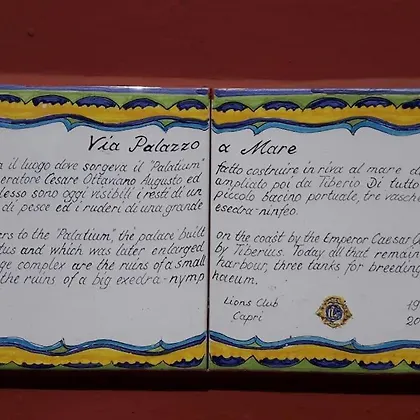 Via Palazzo a Mare
il luogo dove sorgeva il "Palatium" fatto costruire in riva al mare d
eratore Cesare Ottaviano Augusto ed ampliato poi da Tiberio Di tutto
lesso sono oggi visibili i resti di un piccolo bacino portuale, tre vasche
di pesce ed i ruderi di una grande esedra-ninfeo.
ers to the "Palatium", the palace built on the coast by the Emperor Caesar O
tus and which was later enlarged by Tiberius. Today all that remain
ge complex are the ruins of a small harbour, three tanks for breeding
the ruins of a big exedra-nymp haeum.
Lions Club
Capri
19
20